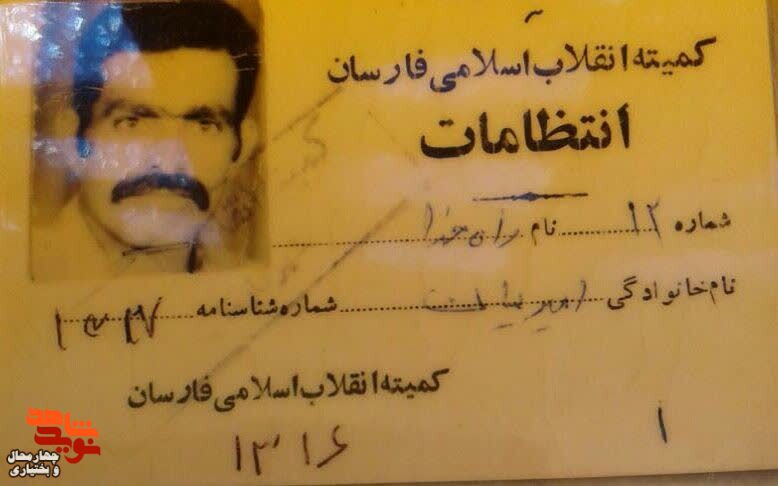 کمیته انقلاب اسلامی فارسان
انتظامات
شماره ۱۲ نام
نام خانوادگی شماره شناسنامه
کمیته انقلاب اسلامی فارسان
۱
نوید شاهد
چهارمحال
و بختیاری